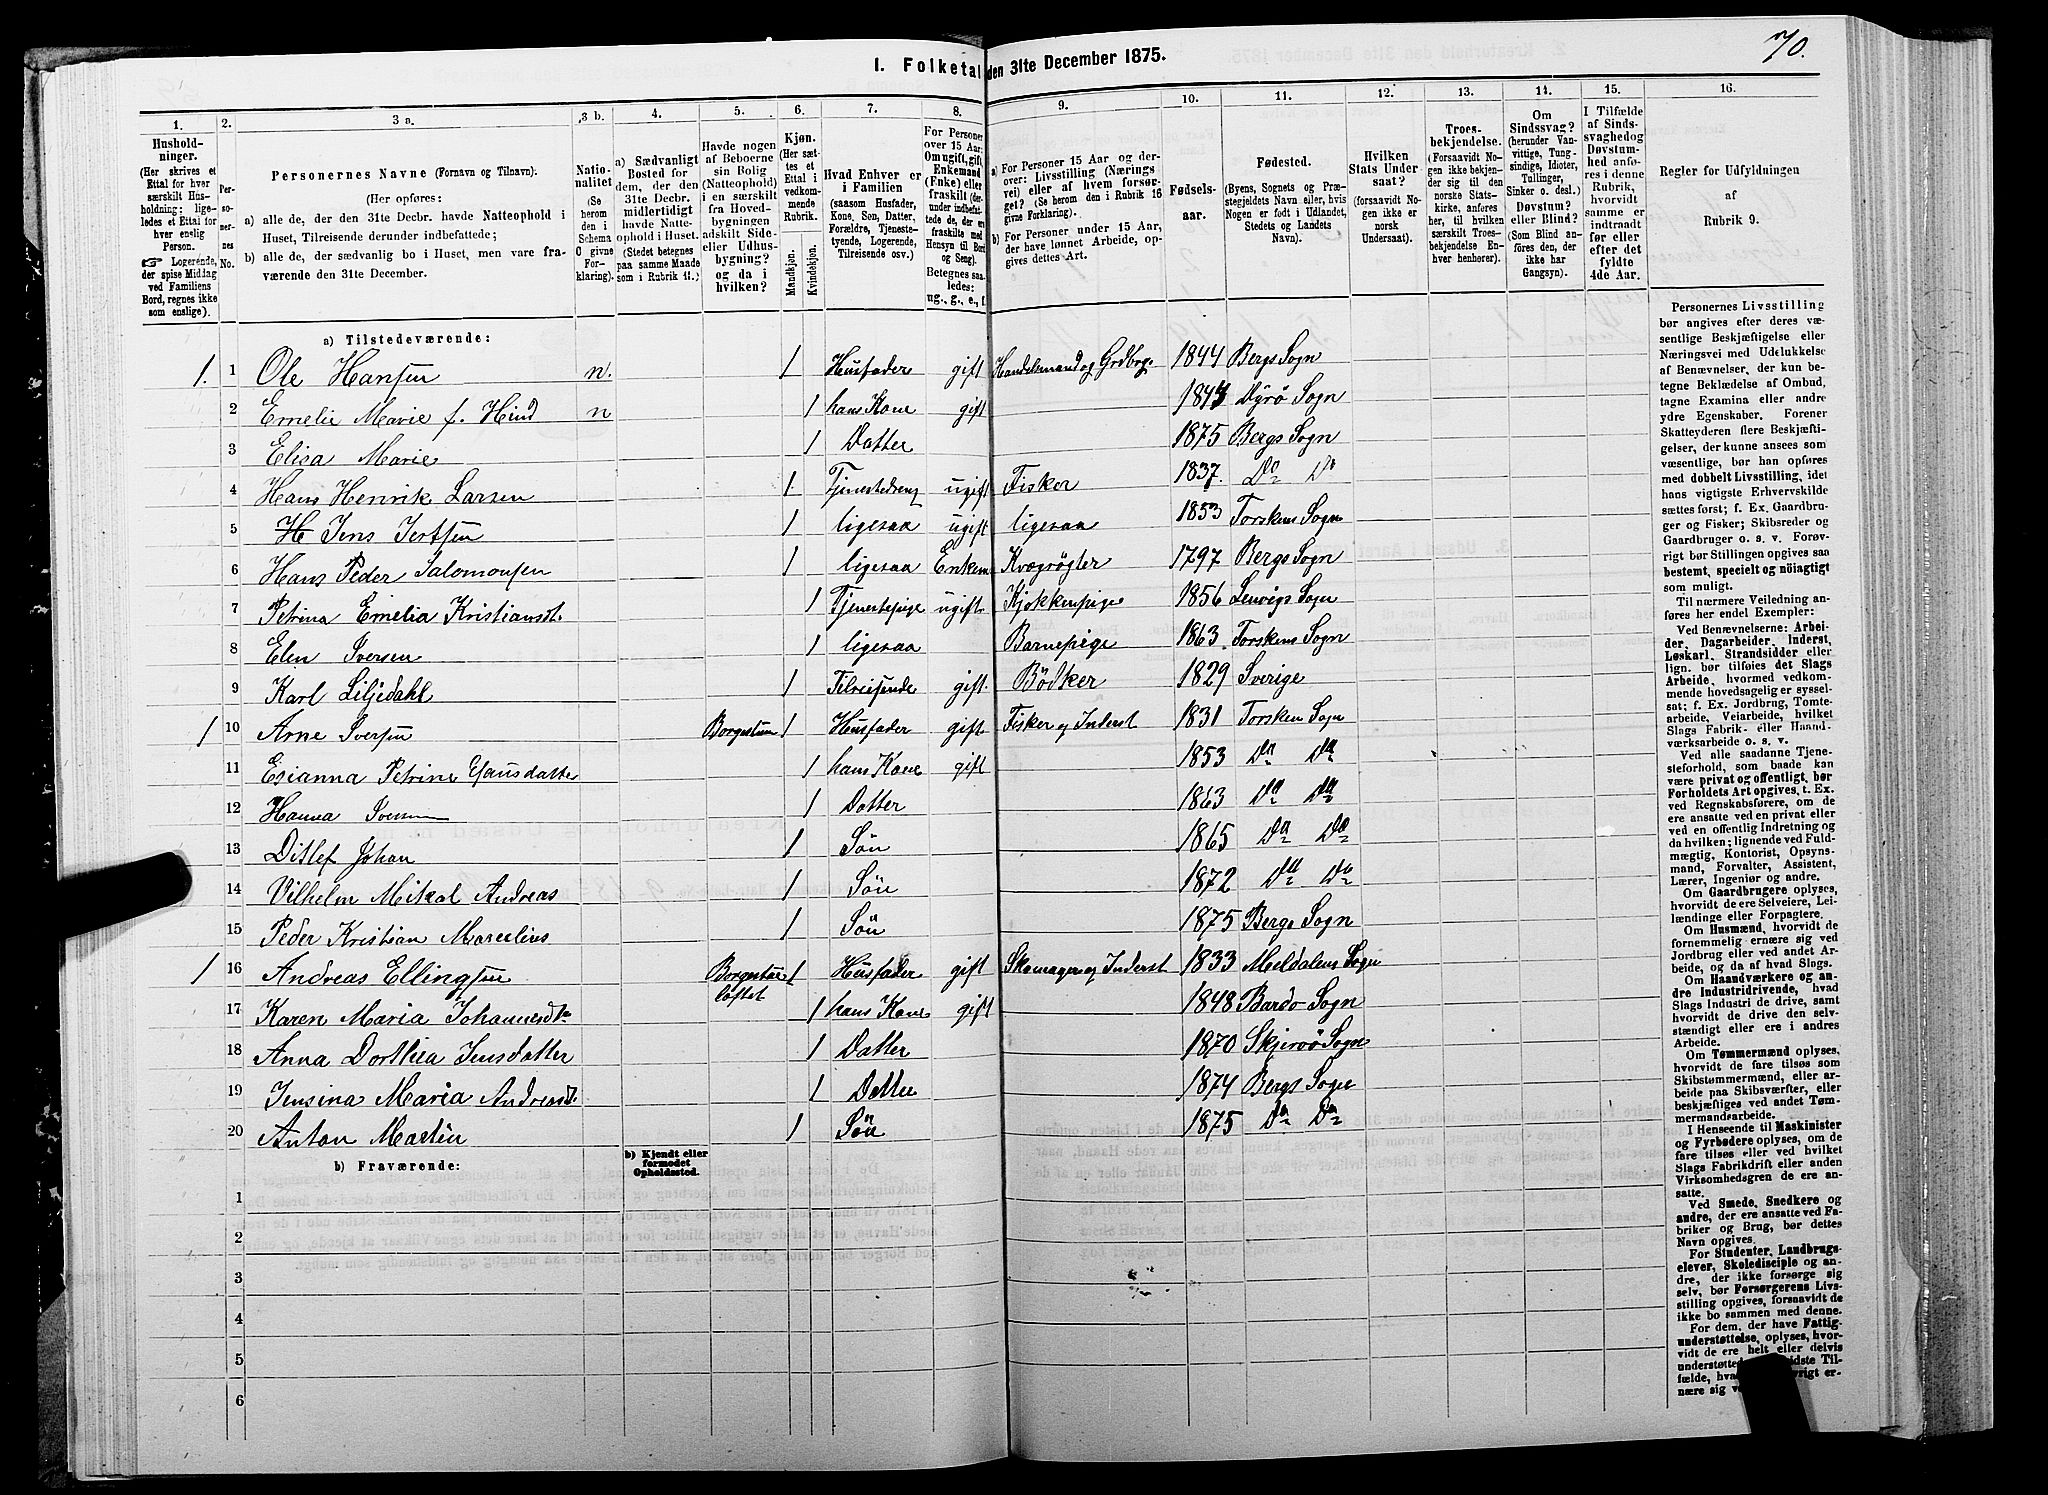 70.
I. Folketal den 31te December 1875.
1. 2. 3 a. 3 b. 4. 5. 6. 7. 8. 9. 10. 11. 12. 13. 14. 15. 16.
Hushold-
ninger.
(Her skrives et
Ettal for hver
særskilt Hus-
holdning; lige-
ledes et Ettal for
hver enslig
Person.
☞ Logerende,
der spise Middag
ved Familiens
Bord, regnes ikke
som enslige).
Per-
so-
ner-
nes
No.
Personernes Navne (Fornavn og Tilnavn).
(Her opføres:
a) alle de, der den 31te Decbr. havde Natteophold i
Huset, Tilreisende derunder indbefattede;
b) alle de, der sædvanlig bo i Huset, men vare fra-
værende den 31te December.
Natio-
nalitet
(Se
herom
den i
Schema
O givne
For-
klaring).
a) Sædvanligt
Bosted for
dem, der den
31te Decbr.
midlertidigt
havde Natte-
ophold i Huset.
(Stedet betegnes
paa samme Maade
som i Rubrik 11.)
Havde nogen
af Beboerne
sin Bolig
(Natteophold)
i en særskilt
fra Hoved-
bygningen
adskilt Side-
eller Udhus-
bygning?
og da i
hvilken?
Kjøn.
(Her sæt-
tes et
Ettal i
vedkom-
mende
Rubrik.
Mandkjøn.
Kvindekjøn.
Hvad Enhver er
i Familien
(saasom Husfader,
Kone, Søn, Datter,
Forældre, Tjeneste-
tyende, Logerende,
Tilreisende osv.)
For Personer
over 15 Aar:
Om ugift, gift,
Enkemand
(Enke) eller
fraskilt (der-
under indbefat-
tede de, der ere
fraskilte med
Hensyn til Bord
og Seng).
Betegnes saa-
ledes:
ug., g., e., f.
a) For Personer 15 Aar og der-
over: Livsstilling (Nærings
vei) eller af hvem forsør-
get? (Se herom den i Rubrik 16
givne Forklaring).
b) For Personer under 15 Aar,
der have lønnet Arbeide, op-
gives dettes Art.
Fødsels-
aar.
Fødested.
(Byens, Sognets og Præ-
stegjeldets Navn eller, hvis
Nogen er født i Udlandet,
Stedets og Landets
Navn).
Hvilken
Stats Under-
saat?
(forsaavidt No-
gen ikke er
norsk
Undersaat).
Troes-
bekjendelse.
(Forsaavidt No-
gen ikke bekjen-
der sig til den
norske Stats-
kirke, anføres
her, til hvilken
særskilt Troes-
bekjendelse En-
hver henhører).
Om
Sindssvag?
(herunder Van-
vittige, Tung-
sindige, Idioter,
Tullinger,
Sinker o. desl.)
Døvstum?
eller Blind?
(Som Blind an-
føres den, der
ikke har
Gangsyn).
I Tilfælde
af Sinds-
svaghed og
Døvstum-
hed anfø-
res i denne
Rubrik,
hvorvidt
samme er
indtraadt
før eller
efter det
fyldte
4de Aar.
Regler for Udfyldningen
af
Rubrik 9.
a) Tilstedeværende:
1. 1 Ole Hansen n. 1 Husfader gift Handelsmand og Grdbrg. 1844 Bergs Sogn
2 Emelie Marie f. Hind n 1 hans Kone gift Dyrö Sogn
3 Elisa Marie 1 Datter 1875 Bergs Sogn
4 Hans Henrik Larsen 1 Tjenestedreng ugift Fisker 1837. Do Do
5 H Jens Jertsen 1 ligesaa ugift ligesaa 1853 Torskens Sogn
6 Hans Peder Salomonsen 1 ligesaa Enkem Kvægrögter 1797 Bergs Sogn
7 Petrina Emelia Kristiansdt. 1 Tjenestepige ugift. Kjøkkenpige 1856 Lenvigs Sogn
8 Elen Iversen 1 ligesaa Barnepige 1863. Torskens Sogn
9 Karl Liljedahl 1 Tilreisende gift. Bödker 1829 Sverige
1 10 Arne Iversen Borgestuen 1 Husfader gift Fisker og Inderst 1831 Torsken Sogn
11 Esianna Petrine 1 hans Kone gift 1853 Do Do
12 Hanna Iversen 1 Datter 1863 Do Do
13 Ditlef Johan 1 Sön 1865 Do Do
14 Vilhelm Mikal Andreas 1 Sön 1872 Do Do
15 Peder Kristian Marelius 1 Sön 1875 Bergs Sogn
1 16 Andreas Ellingsen Borgestue 1 Husfader gift Skomager og Inderst 1833 Meldalens Sogn
loftet
17 Karen Maria Johannesdtr 1 hans Kone gift 1848 Bardo Sogn
18 Anna Dorthea Jensdatter 1 Datter 1870 Skjervö Sogn
19 Jensina Maria Andreasd. 1 Datter 1874 Bergs Sogn
20 Anton Martin 1 Sön 1875 Do Do
b) Fraværende:
b) Kjendt eller
formodet
Opholdssted.
1
2
3
4
5
6
Personernes Livsstilling
bør angives efter deres væ-
sentlige Beskjæftigelse eller
Næringsvei med Udelukkelse
af Benævnelser, der kun be-
tegne Beklædelse af Ombud,
tagne Examina eller andre
ydre Egenskaber. Forener
Skatteyderen flere Beskjæfti-
gelser, der kunne ansees som
væsentlige, bør han opføres
med dobbelt Livsstilling, idet
hans vigtigste Erhvervskilde
sættes først; f. Ex. Gaardbru-
ger og Fisker; Skibsreder og
Gaardbruger o. s. v. Forøv-
rigt bør Stillingen opgives saa
bestemt, specielt og nöiagtigt
som muligt.
Til nærmere Veiledning an-
føres her endel Exempler:
Ved Benævnelserne: Arbei-
der, Dagarbeider, Inderst,
Løskarl, Strandsidder eller
lign. bør tilføies det Slags
Arbeide, hvormed vedkom-
mende hovedsagelig er syssel-
sat; f. Ex. Jordbrug, Tomte-
arbeide, Veiarbeide, hvilket
Slags Fabrik- eller Haand-
værksarbeide o. s. v.
Ved alle saadanne Tjene-
steforhold, som baade kan
være privat og offentligt, bør
Forholdets Art opgives, t. Ex.
ved Regnskabsførere, om de
ere ansatte ved en privat eller
ved en offentlig Indretning og
da hvilken; lignende ved Fuld-
mægtig, Kontorist, Opsyns-
mand, Forvalter, Assistent,
Lærer, Ingeniør og andre.
Om Gaardbrugere oplyses,
hvorvidt de ere Selveiere, Lei-
lændinge eller Forpagtere.
Om Husmænd, hvorvidt de
fornemmelig ernære sig ved
Jordbrug eller ved andet Ar-
beide, og da af hvad Slags.
Om Haandværkere og an-
dre Industridrivende, hvad
Slags Industri de drive, samt
hvorvidt de drive den selv-
stændigt eller ere i andres
Arbeide.
Om Tømmermænd oplyses,
hvorvidt de fare tilsøs som
Skibstømmermænd, eller ar-
beide paa Skibsværfter, eller
beskjæftiges ved andet Tøm-
mermandsarbeide.
I Henseende til Maskinister
og Fyrbødere oplyses, om de
fare tilsøs eller ved hvilket
Slags Fabrikdrift eller anden
Virksomhedsgren de ere an-
satte.
Ved Smede, Snedkere og
andre, der ere ansatte ved Fa-
briker og Brug, bør dettes
Navn opgives.
For Studenter, Landbrugs-
elever, Skoledisciple og an-
dre, der ikke forsørge sig
selv, bør Forsørgerens Livs-
stilling opgives, forsaavidt de
ikke bo sammen med denne.
For dem, der have Fattig-
understøttelse, oplyses, hvor-
vidt de ere helt eller delvis